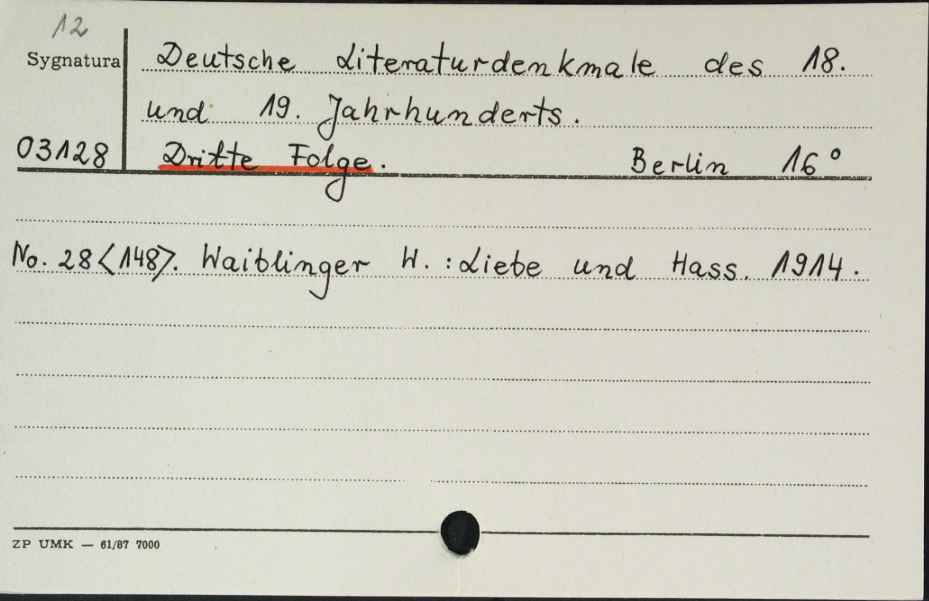 12
Sygnatura
Deutsche Literaturdenkmale des 18.
und 19. Jahrhunderts.
03128
Dritte Folge. Berlin 16°
No. 28 <148>. Waiblinger W. : Liebe und Hass. 1914.
ZP UMK — 61/87 7000